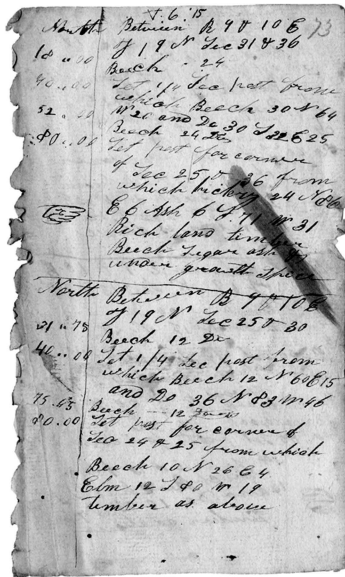 V. 6. 15
73
North Between R 9 & 10 E
T 19 N Sec 31 & 36
18..00 Beech - 24
40..00 Set 1/4 Sec post from
which Beech 30 N 64
W 20 and Do 30 S 22 E 25
52.. Beech 24 Do
80..00 Set post for corner
of Sec 25 & 36 from
which hickory 24 N 86
E 6 Ash 6 S 71 W 31
Rich land timber
Beech Sugar ash &c
under growth Spice
North Between R 9 & 10 E
T 19 N Sec 25 & 30
21..73 Beech 12 Do
40..00 Set 1/4 Sec post from
which Beech 12 N 60 E 15
and Do 36 N 83 W 46
75.43 Beech - 12
80.00 Set post for corner of
Sec 24 & 25 from which
Beech 10 N 26 E 4
Elm 12 S 80 W 19
timber as above